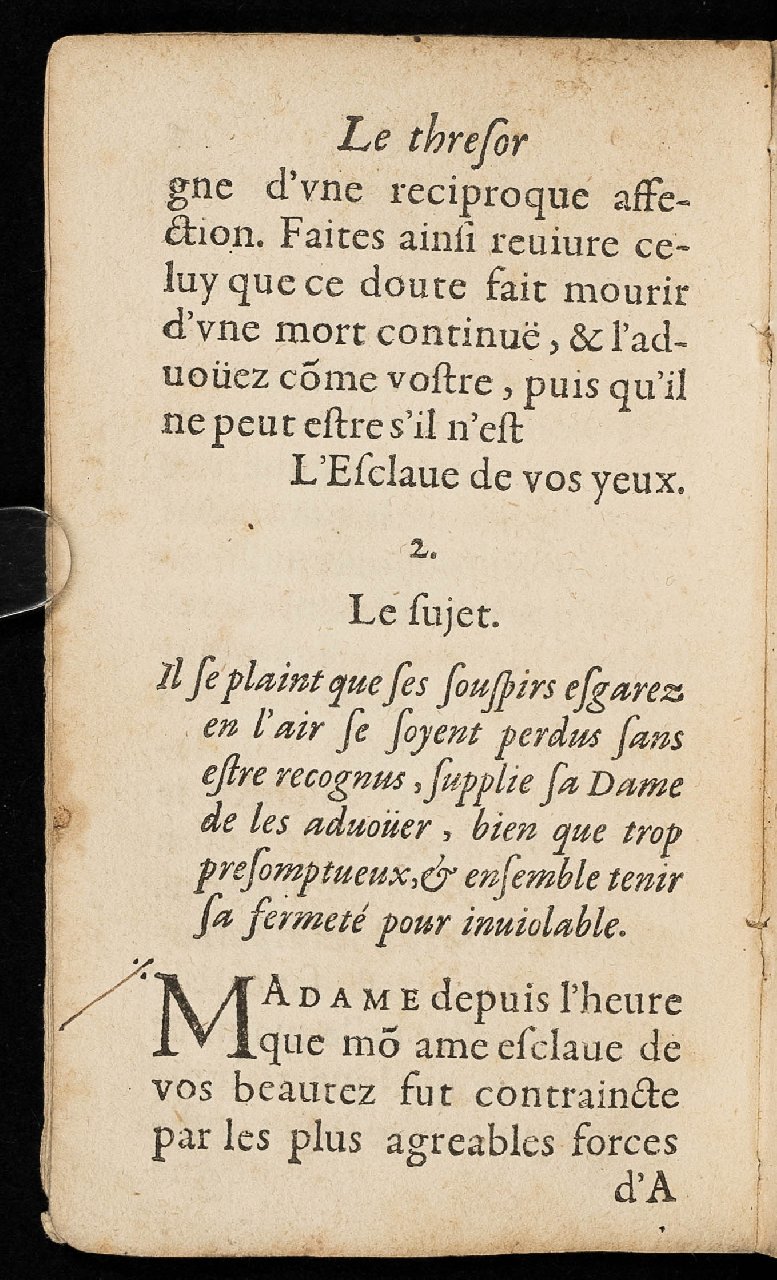 Le threſor
gne d'vne reciproque affe-
ction. Faites ainſi reuiure ce-
luy que ce doute fait mourir
d'vne mort continuë, & l'ad-
uoüez cõme voſtre, puis qu'il
ne peut eſtre s'il n'eſt
L'Eſclaue de vos yeux.
2.
Le ſujet.
Il ſe plaint que ſes ſouſpirs eſgarez
en l'air ſe ſoyent perdus ſans
eſtre recognus, ſupplie ſa Dame
de les aduoüer, bien que trop
preſomptueux, & enſemble tenir
ſa fermeté pour inuiolable.
MADAME depuis l'heure
que mõ ame eſclaue de
vos beautez fut contraincte
par les plus agreables forces
d'A